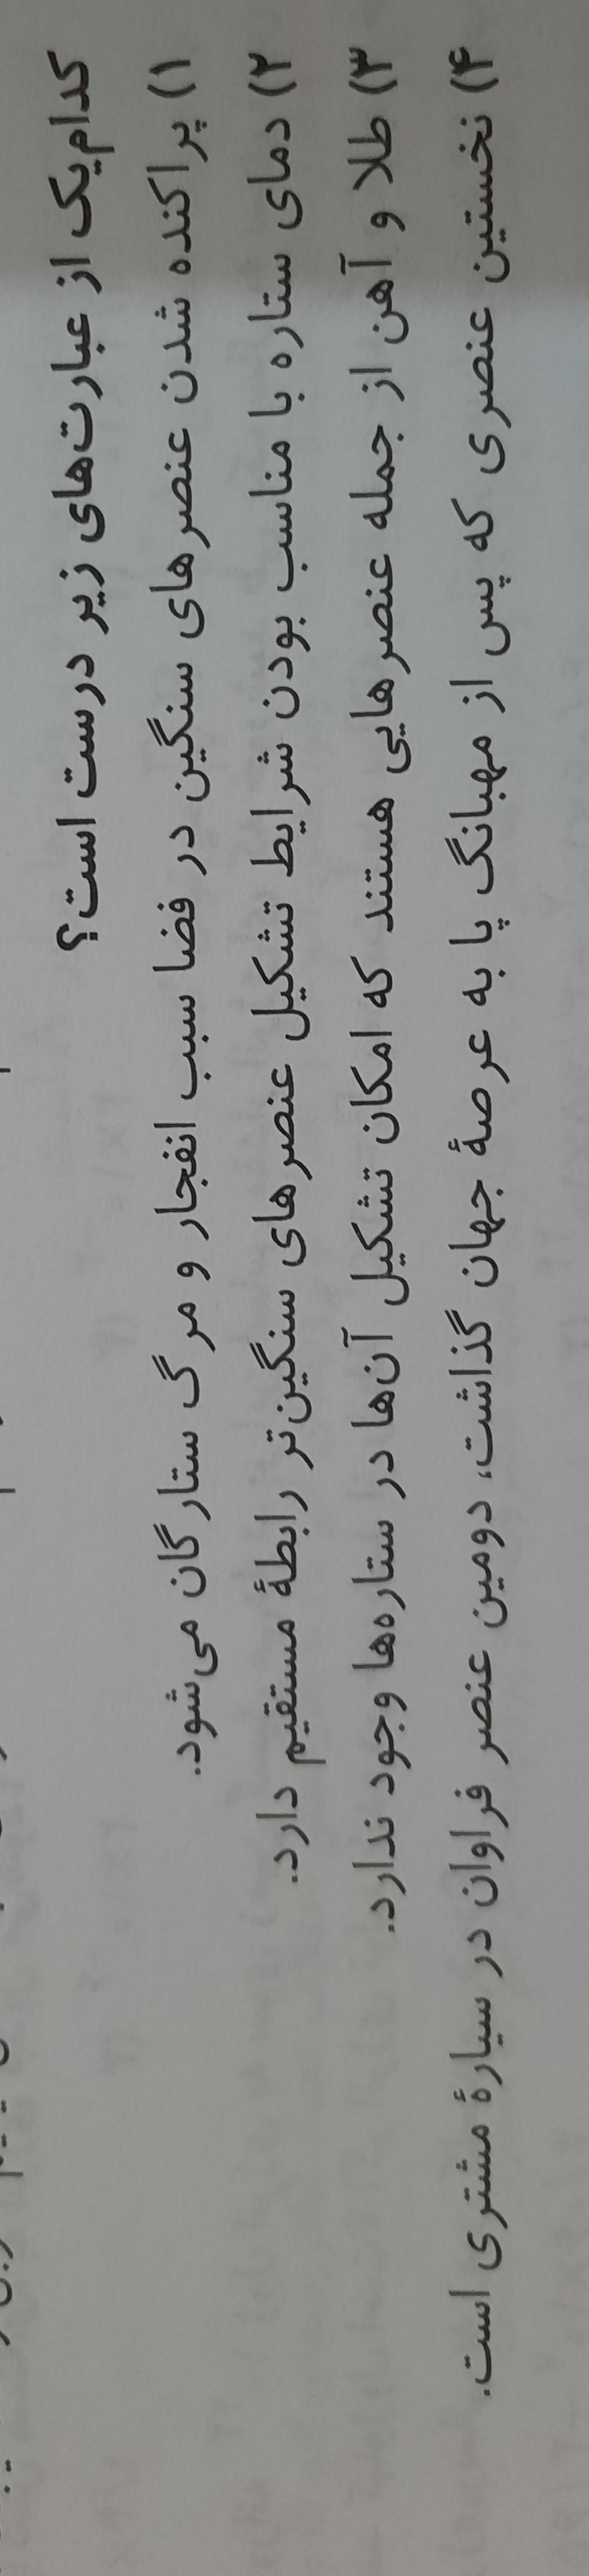 کدام‌یک از عبارت‌های زیر درست است؟
۱) پراکنده شدن عنصرهای سنگین در فضا سبب انفجار و مرگ ستارگان می‌شود.
۲) دمای ستاره با مناسب بودن شرایط تشکیل عنصرهای سنگین‌تر رابطهٔ مستقیم دارد.
۳) طلا و آهن از جمله عنصرهایی هستند که امکان تشکیل آن‌ها در ستاره‌ها وجود ندارد.
۴) نخستین عنصری که پس از مهبانگ پا به عرصهٔ جهان گذاشت، دومین عنصر فراوان در سیارهٔ مشتری است.